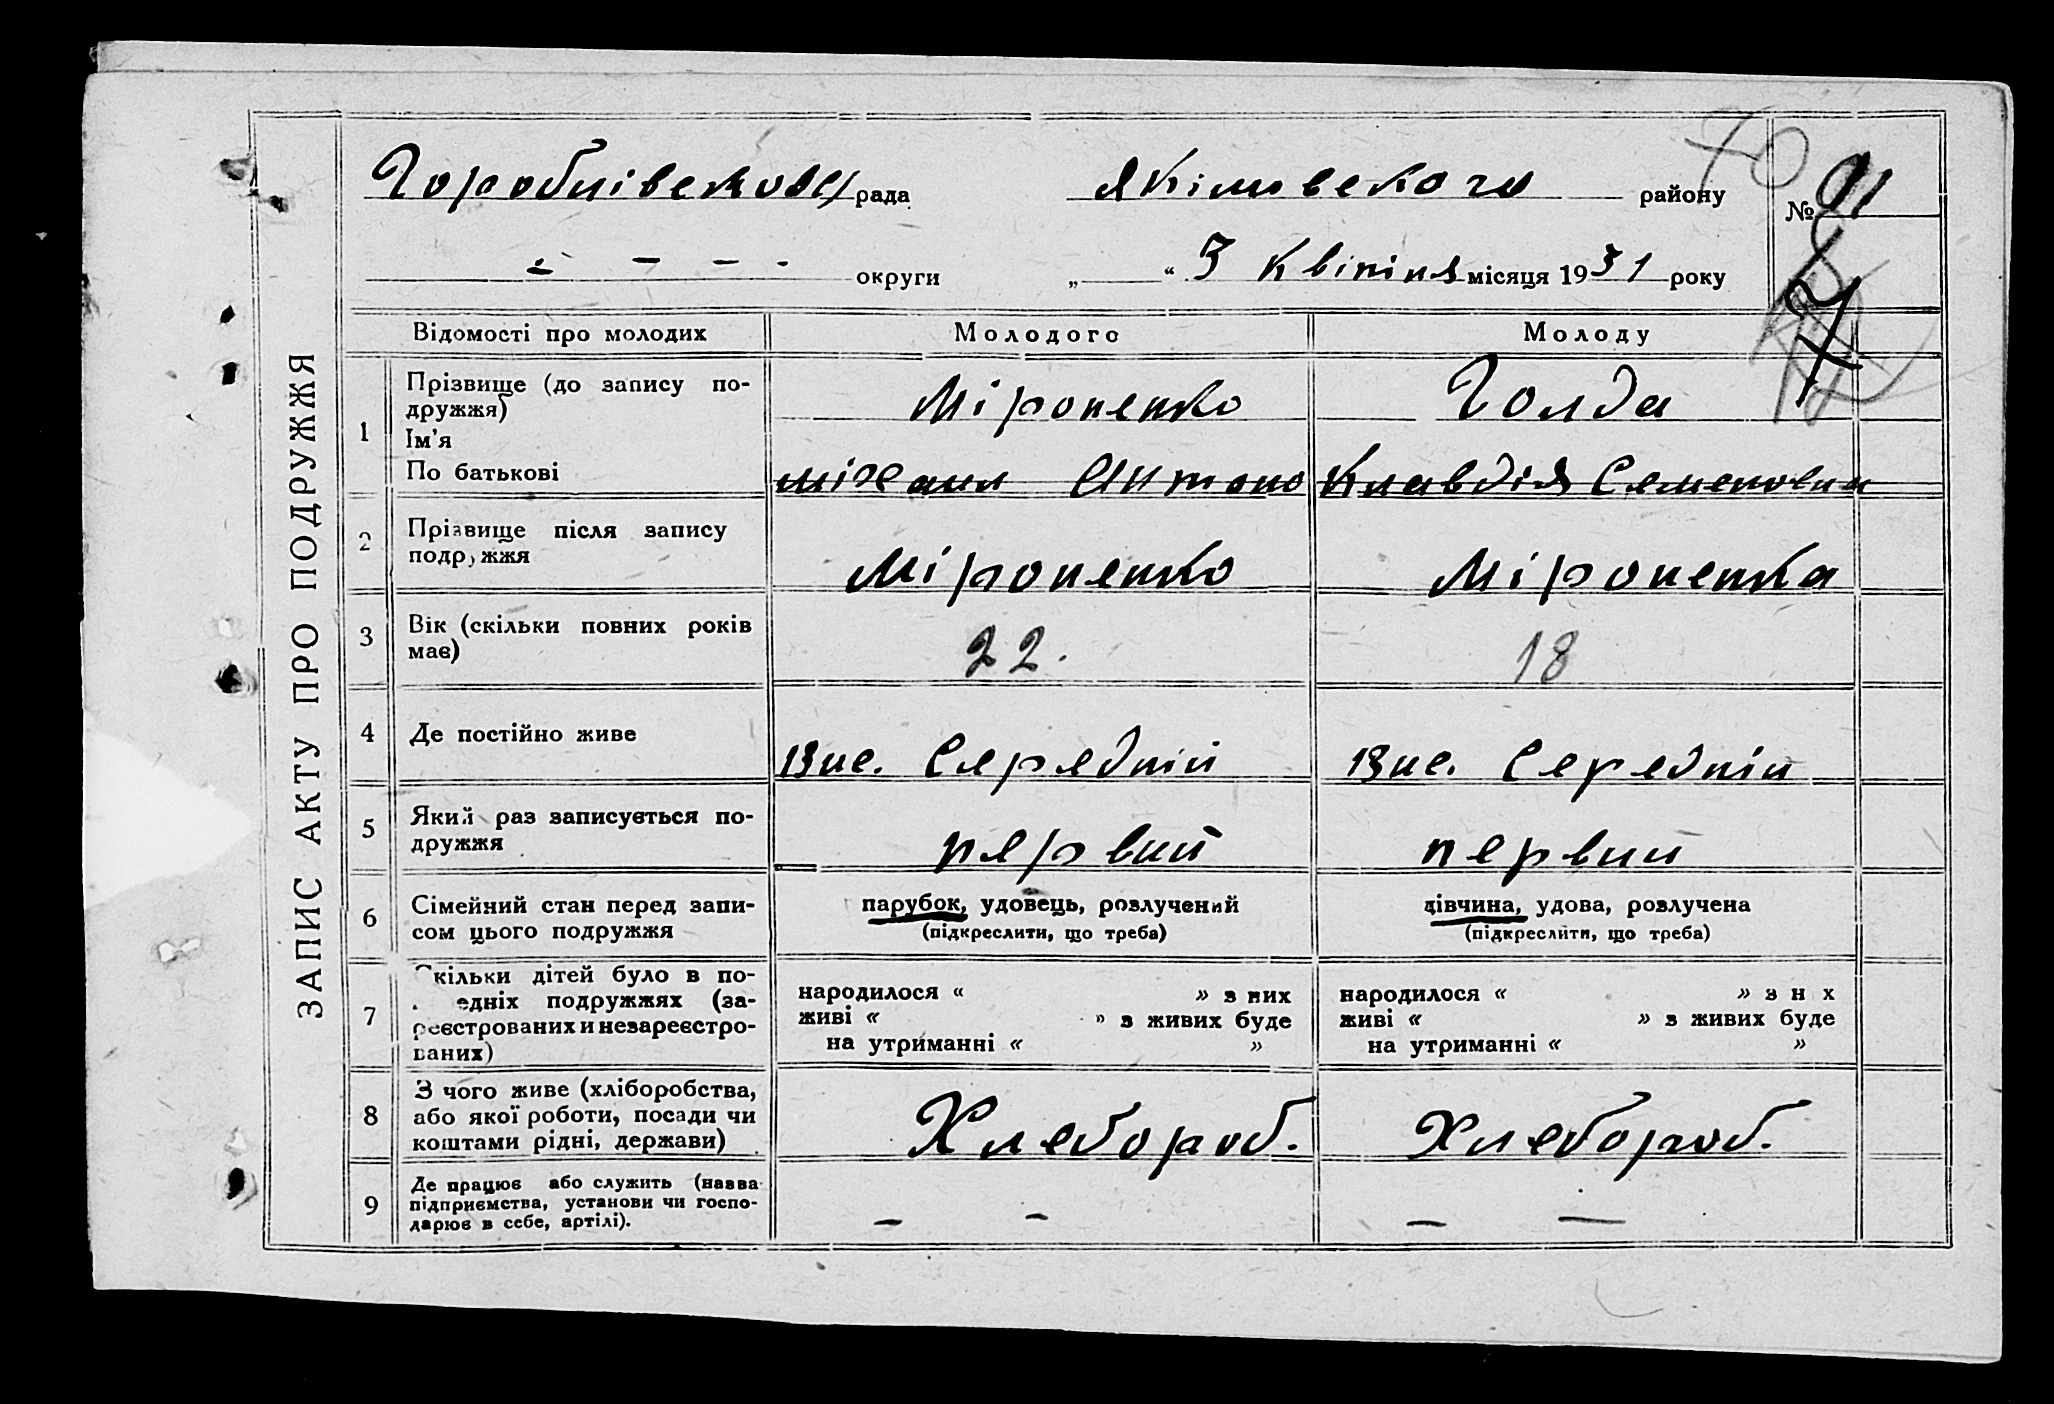 ЗАПИС АКТУ ПРО ПОДРУЖЖЯ
рада Якімивского району
№
округи „ “ 3 Квітня місяця 1931 року
Відомості про молодих Молодого Молоду
1 Прізвище (до запису по-
дружжя) Міроненко Голда
Ім'я
По батькові Міхаил Антоно Клавдія Семеновни
2 Прізвище після запису
подружжя Міроненко Міроненка
3 Вік (скільки повних років
має) 22. 18
4 Де постійно живе Вис. Середній Вис. Середній
5 Який раз записується по-
дружжя первий первий
6 Сімейний стан перед запи-
сом цього подружжя
парубок, удовець, розлучений
(підкреслити, що треба)
дівчина, удова, розлучена
(підкреслити, що треба)
7 Скільки дітей було в по-
едніх подружжях (за-
реєстрованих и незареєстро-
ваних)
народилося “ » з них
живі “ » з живих буде
на утриманні “ »
народилося “ » з н х
живі “ » з живих буде
на утриманні “ »
8 З чого живе (хліборобства,
або якої роботи, посади чи
коштами рідні, держави) Хлебороб. Хлебороб.
9 Де працює або служить (назва
підприємства, установи чи госпо-
дарює в себе, артілі). – – – –